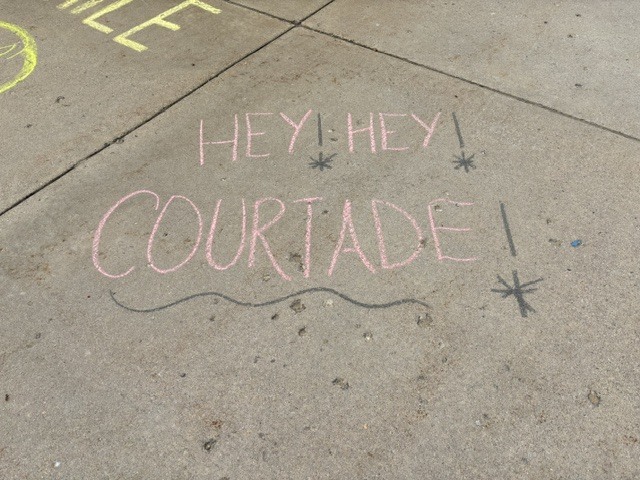 HEY! HEY!
COURTADE!